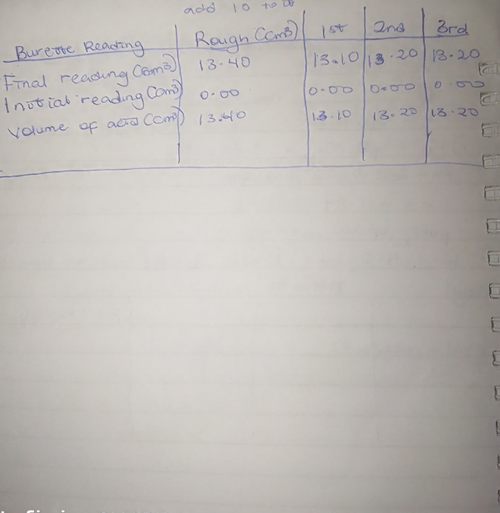 add 10 to
Burette Reading Rough (cm3) 1st 2nd 3rd
Final reading (cm3) 13.40 13.10 13.20 13.20
Initial reading (cm3) 0.00 0.00 0.00 0.00
Volume of acid (cm3) 13.40 13.10 13.20 13.20